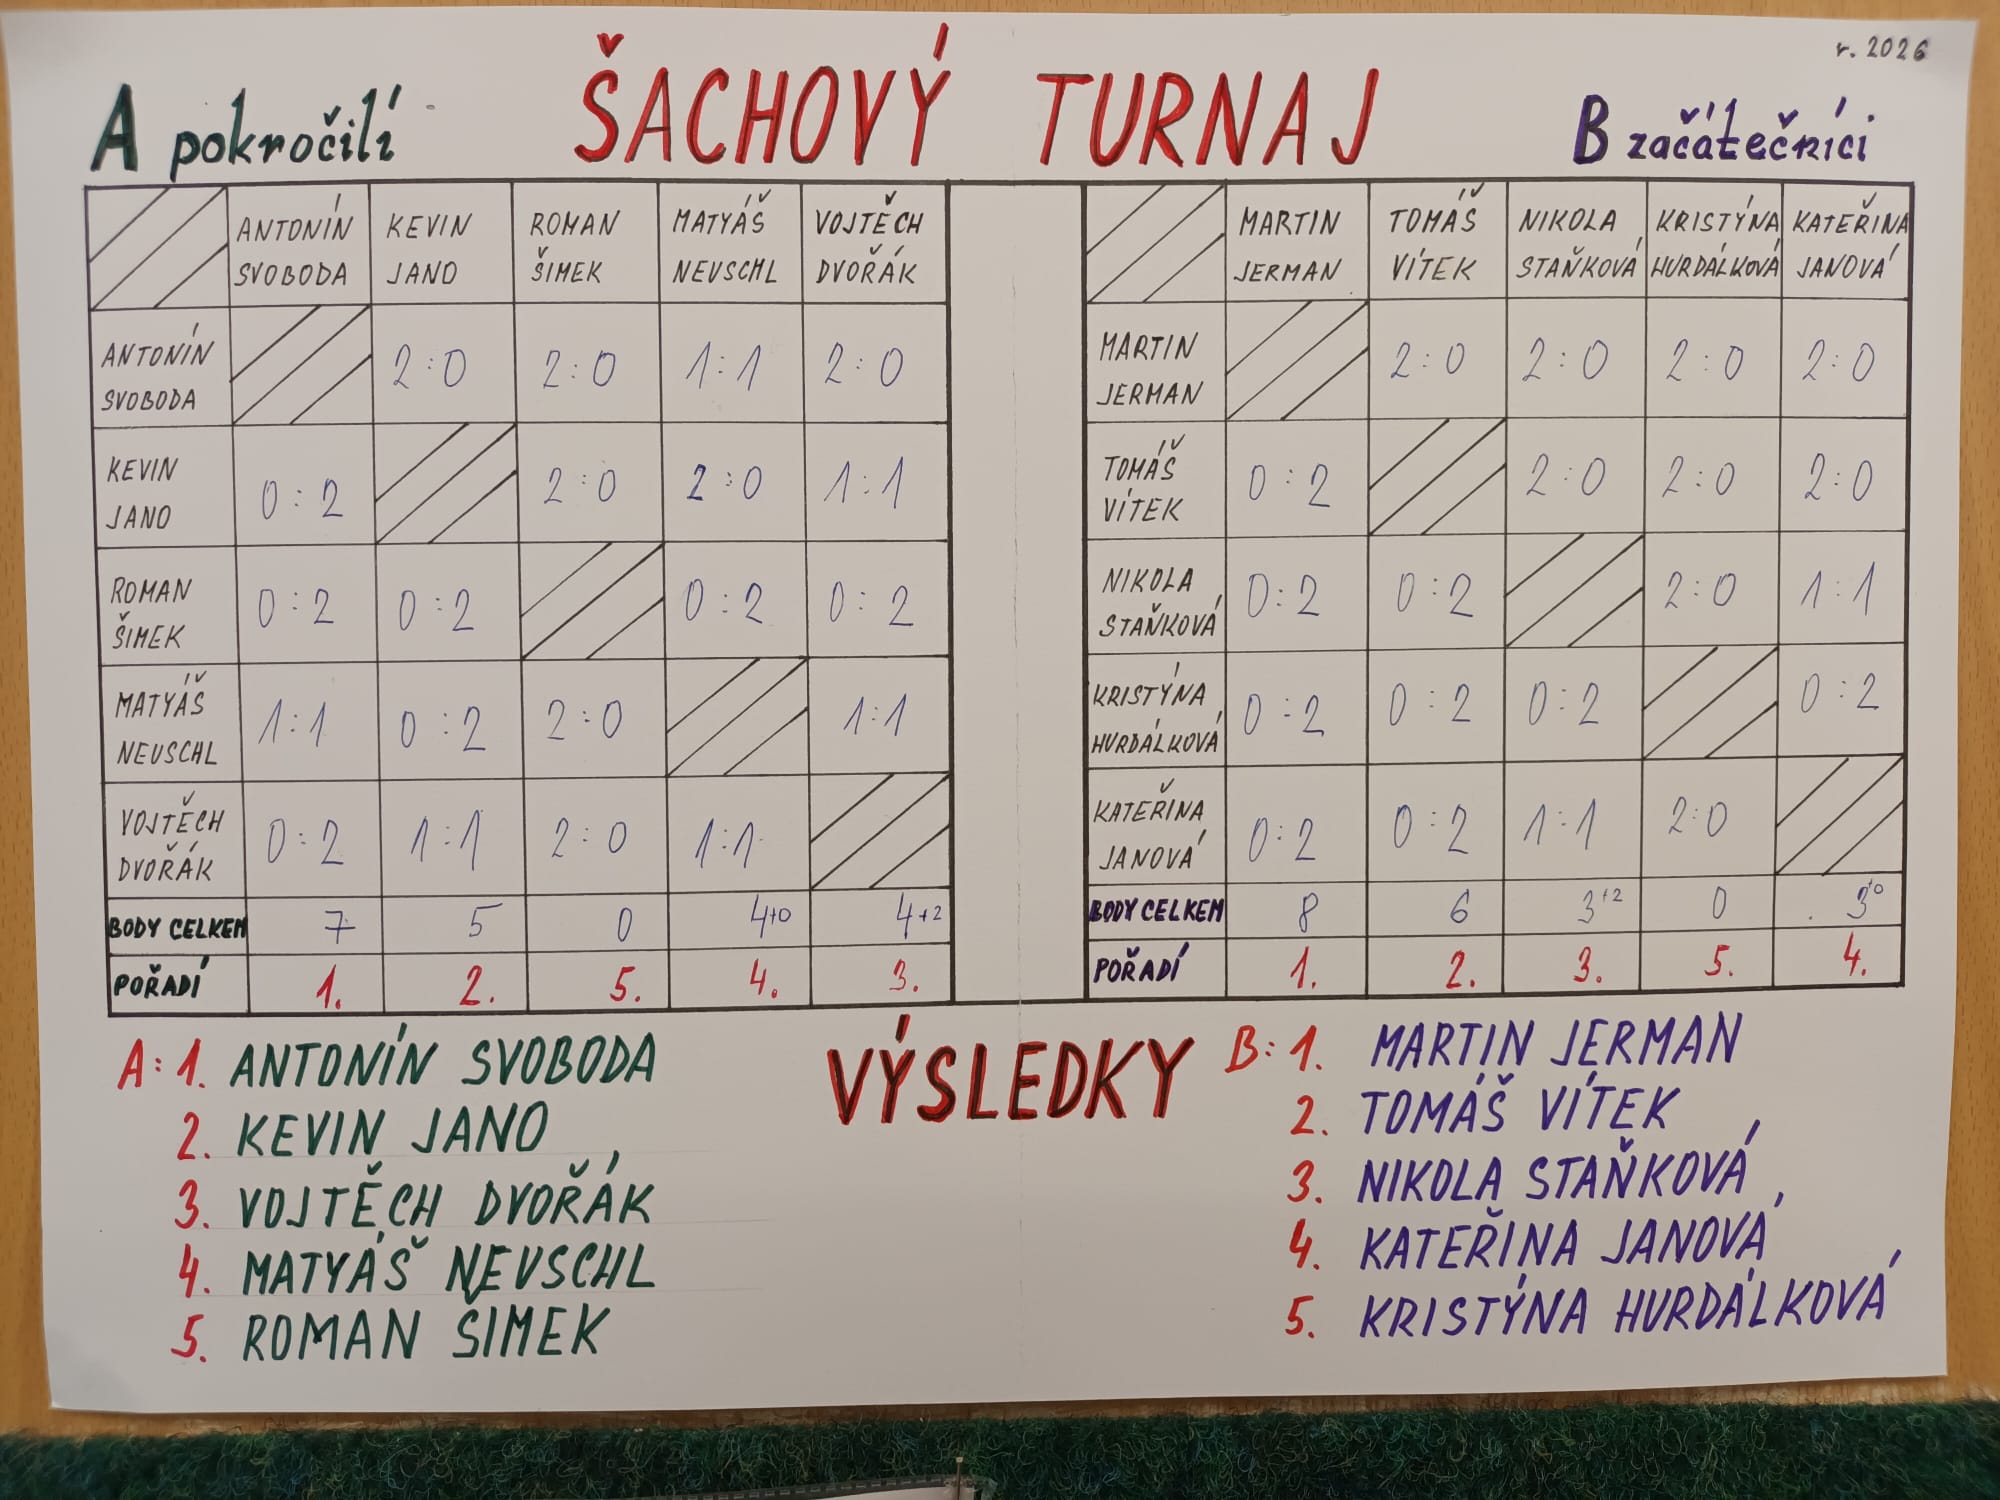 r. 2026
A pokročilí ŠACHOVÝ TURNAJ B začátečníci
ANTONÍN SVOBODA KEVIN JANO ROMAN ŠIMEK MATYÁŠ NEUSCHL VOJTĚCH DVOŘÁK
ANTONÍN SVOBODA 2:0 2:0 1:1 2:0
KEVIN JANO 0:2 2:0 2:0 1:1
ROMAN ŠIMEK 0:2 0:2 0:2 0:2
MATYÁŠ NEUSCHL 1:1 0:2 2:0 1:1
VOJTĚCH DVOŘÁK 0:2 1:1 2:0 1:1
BODY CELKEM 7 5 0 4+0 4+2
POŘADÍ 1. 2. 5. 4. 3.
MARTIN JERMAN TOMÁŠ VÍTEK NIKOLA STAŇKOVÁ KRISTÝNA HURDÁLKOVÁ KATEŘINA JANOVÁ
MARTIN JERMAN 2:0 2:0 2:0 2:0
TOMÁŠ VÍTEK 0:2 2:0 2:0 2:0
NIKOLA STAŇKOVÁ 0:2 0:2 2:0 1:1
KRISTÝNA HURDÁLKOVÁ 0:2 0:2 0:2 0:2
KATEŘINA JANOVÁ 0:2 0:2 1:1 2:0
BODY CELKEM 8 6 3+2 0 3+0
POŘADÍ 1. 2. 3. 5. 4.
VÝSLEDKY
A: 1. ANTONÍN SVOBODA
2. KEVIN JANO
3. VOJTĚCH DVOŘÁK
4. MATYÁŠ NEUSCHL
5. ROMAN ŠIMEK
B: 1. MARTIN JERMAN
2. TOMÁŠ VÍTEK
3. NIKOLA STAŇKOVÁ
4. KATEŘINA JANOVÁ
5. KRISTÝNA HURDÁLKOVÁ